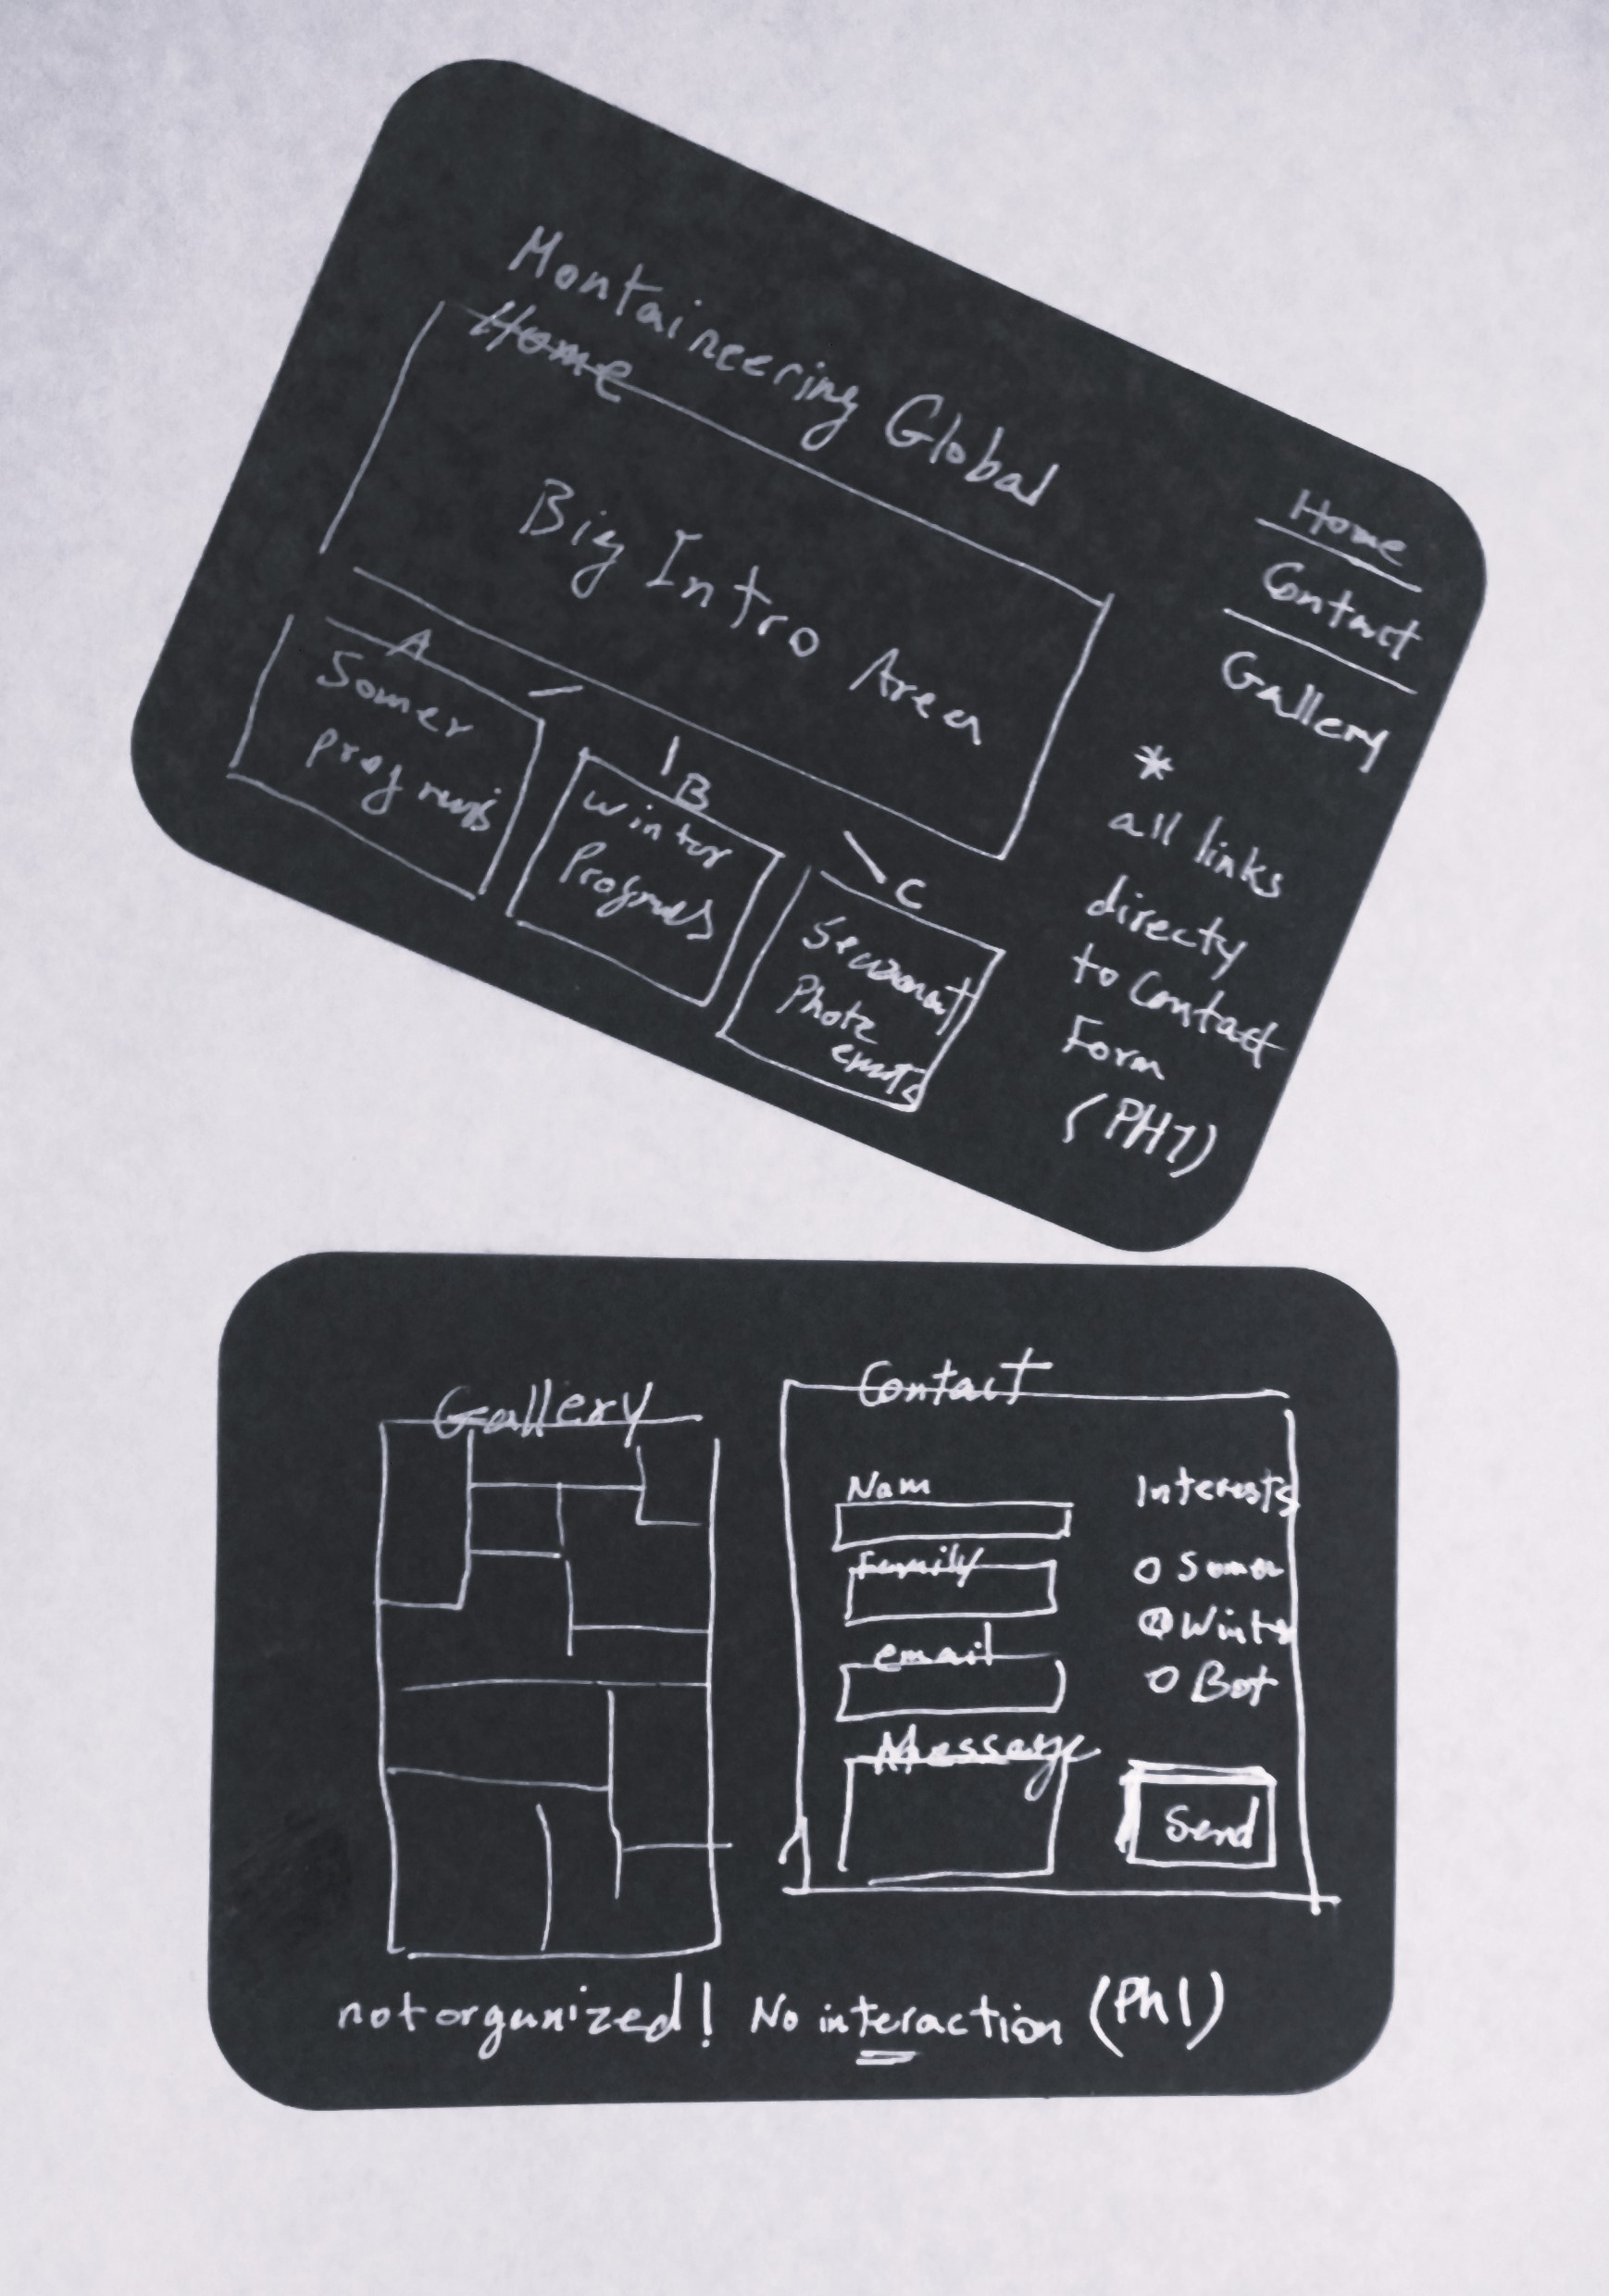 Montaineering Global
Home
Big Intro Area
A
Somer
programs
B
winter
Programs
C
Photo
Home
Contact
Gallery
*
all links
directy
to Contact
Form
(PH1)
Gallery
Contact
Nam
Family
email
Message
Interests
Somer
Winter
Bot
Send
not organized! No interaction (Ph1)